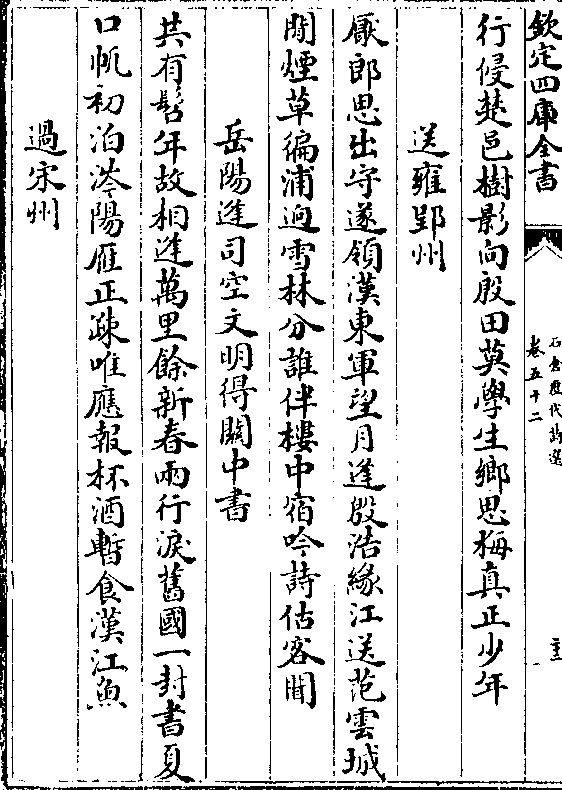 欽定四庫全書
石倉歷代詩選
卷五十二
行侵楚邑樹影向殷田莫學生鄉思梅真正少年
送雍郢州
厭郎思出守遂領漢東軍望月逢殷浩緣江送范雲城
閒煙草徧浦逈雪林分誰伴樓中宿吟詩估客聞
岳陽逢司空文明得關中書
共有髫年故相逢萬里餘新春兩行淚舊國一封書夏
口帆初泊涔陽雁正疎唯應報杯酒暫食漢江魚
過宋州